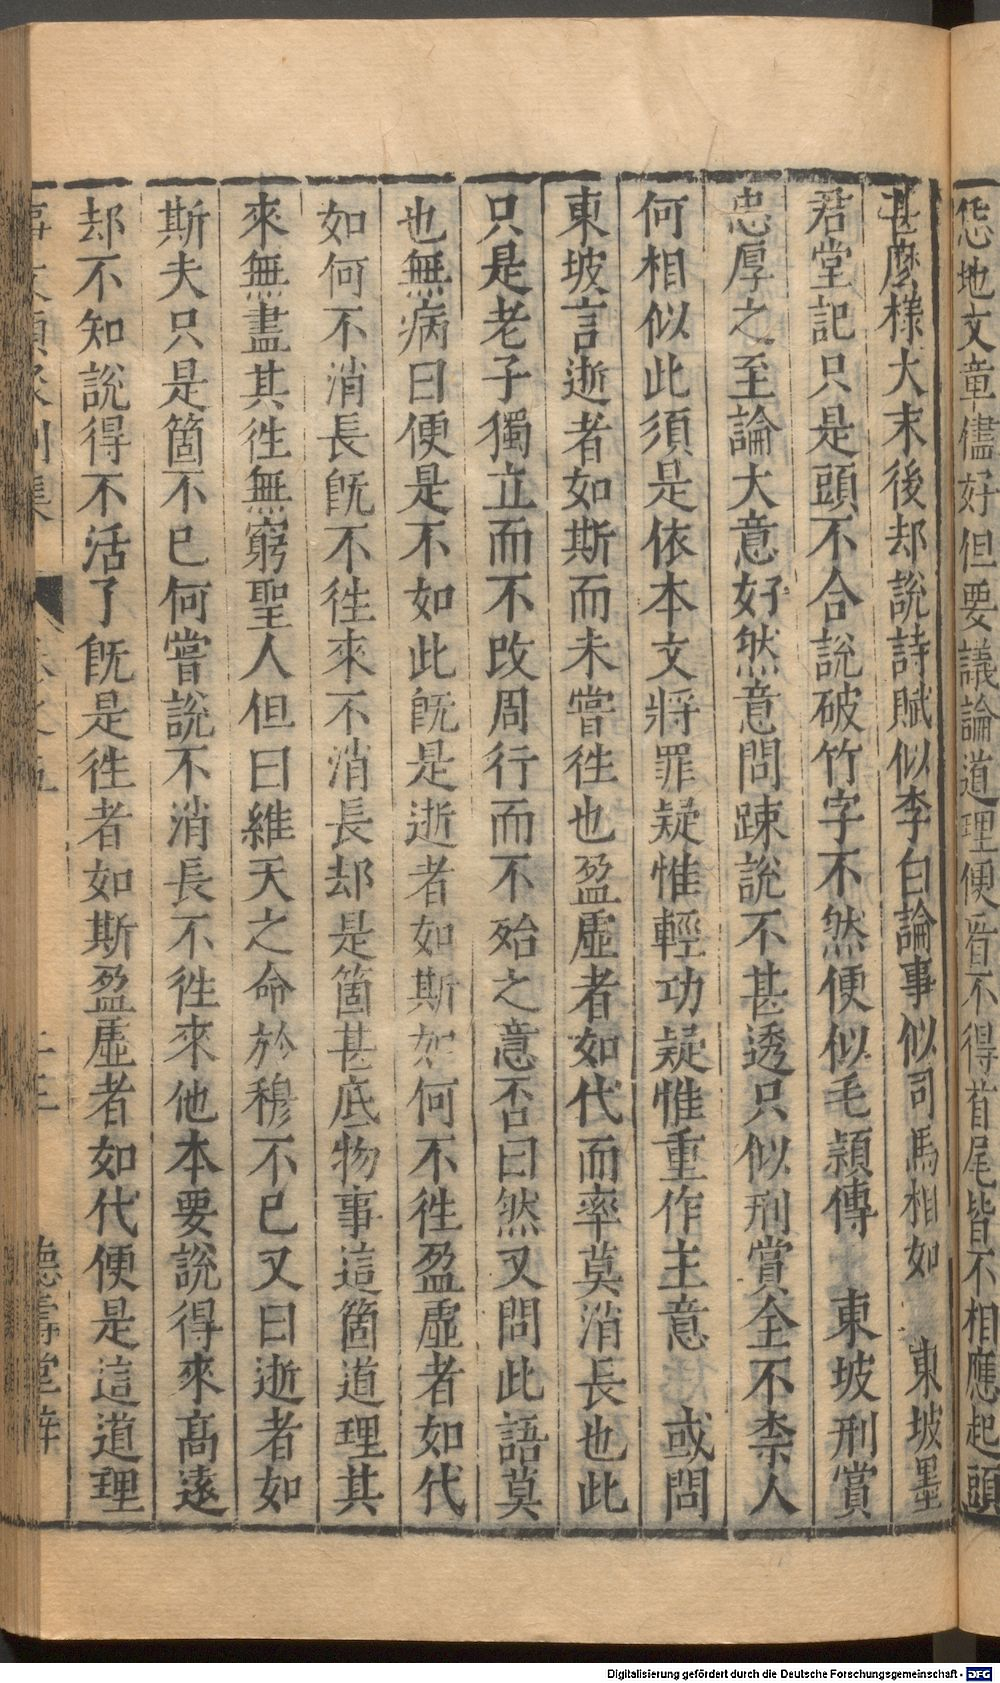 恁地文章儘好但要議論道理便看不得首尾皆不相應起頭
甚麼樣大末後却說詩賦似李白論事似司馬相如　東坡墨
君堂記只是頭不合說破竹字不然便似毛穎傳　東坡刑賞
忠厚之至論大意好然意問踈說不甚透只似刑賞全不柰人
何相似此須是依本文將罪疑惟輕功疑惟重作主意　或問
東坡言逝者如斯而未嘗徃也盈虛者如代而率莫消長也此
只是老子獨立而不改周行而不殆之意否曰然又問此語莫
也無病曰便是不如此旣是逝者如斯如何不徃盈虛者如代
如何不消長旣不徃來不消長却是箇甚底物事這箇道理其
來無盡其徃無窮聖人但曰維天之命於穆不已又曰逝者如
斯夫只是箇不已何嘗說不消長不徃來他本要說得來高遠
却不知說得不活了旣是徃者如斯盈虛者如代便是這道理
事文類聚別集　德壽堂梓
Digitalisierung gefördert durch die Deutsche Forschungsgemeinschaft - DFG